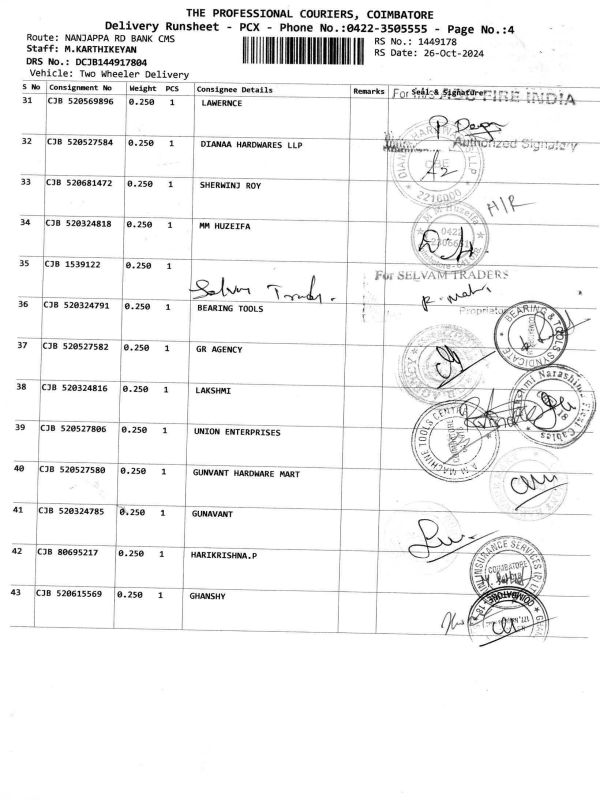 THE PROFESSIONAL COURIERS, COIMBATORE
Delivery Runsheet - PCX - Phone No.:0422-3505555 - Page No.:4
Route: NANJAPPA RD BANK CMS
RS No.: 1449178
Staff: M.KARTHIKEYAN
RS Date: 26-Oct-2024
DRS No.: DCJB144917804
Vehicle: Two Wheeler Delivery
S No Consignment No Weight PCS Consignee Details Remarks Seal & Signature
31 CJB 520569896 0.250 1 LAWERNCE
FIRE INDIA
Authorized Signatory
32 CJB 520527584 0.250 1 DIANAA HARDWARES LLP
2216000
33 CJB 520681472 0.250 1 SHERWINJ ROY
H/R
34 CJB 520324818 0.250 1 MM HUZEIFA
0422
35 CJB 1539122 0.250 1
For SELVAM TRADERS
Selvam Trader.
Proprietor
36 CJB 520324791 0.250 1 BEARING TOOLS
BEARING & TOOLS SYNDICATE
37 CJB 520527582 0.250 1 GR AGENCY
38 CJB 520324816 0.250 1 LAKSHMI
39 CJB 520527806 0.250 1 UNION ENTERPRISES
A.M MACHINE TOOLS CENTRE
40 CJB 520527580 0.250 1 GUNVANT HARDWARE MART
41 CJB 520324785 0.250 1 GUNAVANT
42 CJB 80695217 0.250 1 HARIKRISHNA.P
INSURANCE SERVICES (P) LTD
COIMBATORE
43 CJB 520615569 0.250 1 GHANSHY